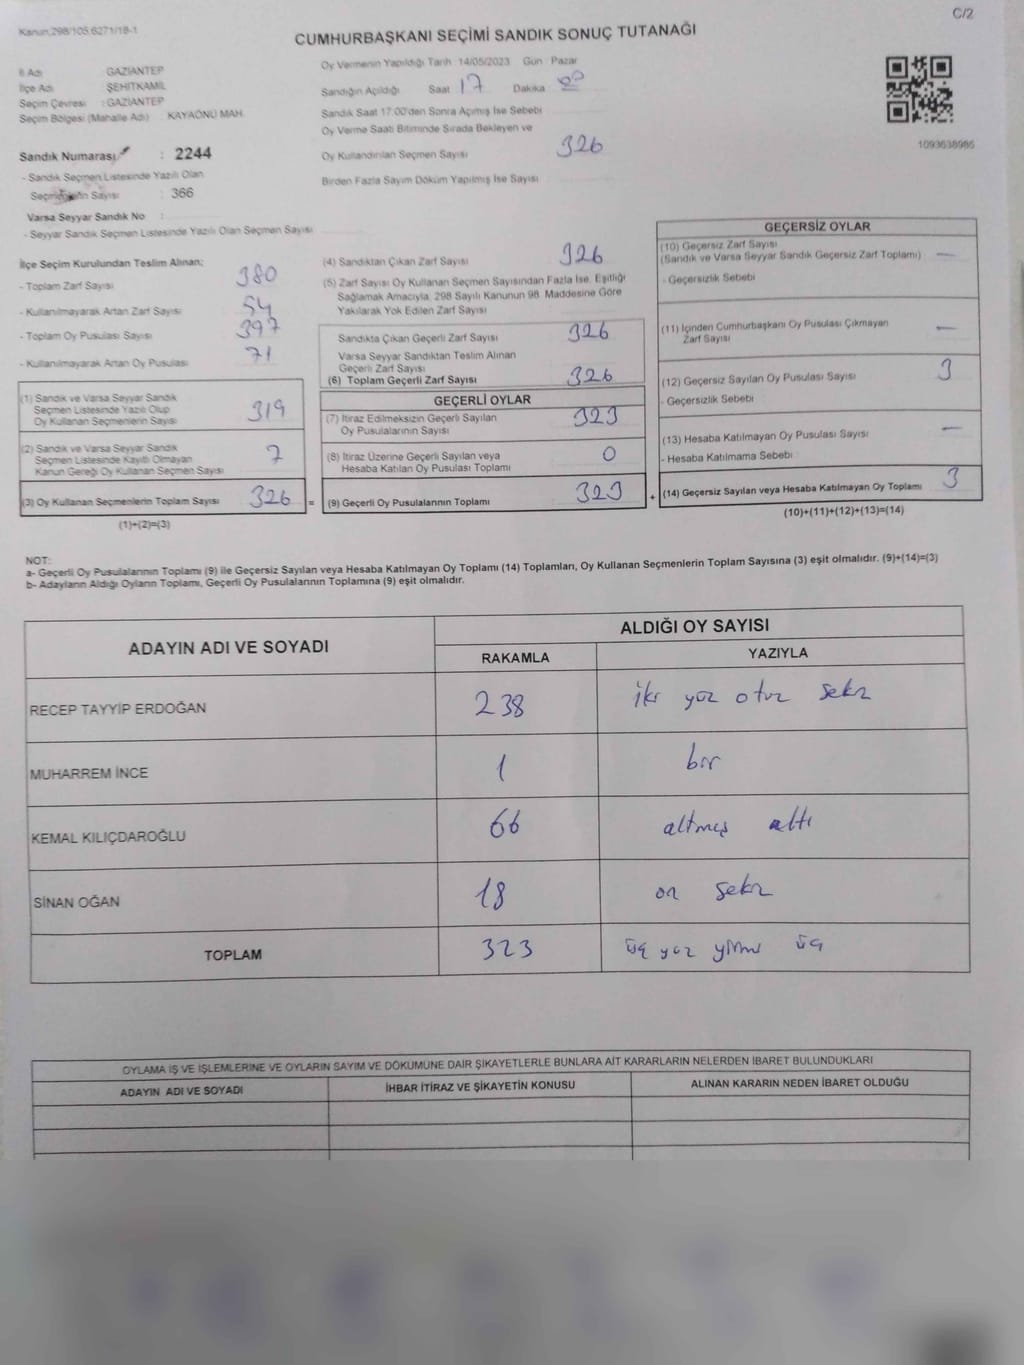 Kanun,298/105,6271/18-1
C/2
CUMHURBAŞKANI SEÇİMİ SANDIK SONUÇ TUTANAĞI
İl Adı : GAZİANTEP
İlçe Adı : ŞEHİTKAMİL
Seçim Çevresi : GAZİANTEP
Seçim Bölgesi (Mahalle Adı) : KAYAÖNÜ MAH.
Sandık Numarası : 2244
- Sandık Seçmen Listesinde Yazılı Olan
Seçmenlerin Sayısı : 366
Varsa Seyyar Sandık No :
- Seyyar Sandık Seçmen Listesinde Yazılı Olan Seçmen Sayısı
Oy Vermenin Yapıldığı Tarih 14/05/2023 Gün Pazar
Sandığın Açıldığı Saat 17 Dakika 00
Sandık Saat 17:00'den Sonra Açımış İse Sebebi
Oy Verme Saati Bitiminde Sırada Bekleyen ve
Oy Kullandırılan Seçmen Sayısı 326
Birden Fazla Sayım Döküm Yapılmış İse Sayısı
1093638986
İlçe Seçim Kurulundan Teslim Alınan;
- Toplam Zarf Sayısı 380
- Kullanılmayarak Artan Zarf Sayısı 54
- Toplam Oy Pusulası Sayısı 397
- Kullanılmayarak Artan Oy Pusulası 71
(1) Sandık ve Varsa Seyyar Sandık
Seçmen Listesinde Yazılı Olup
Oy Kullanan Seçmenlerin Sayısı 319
(2) Sandık ve Varsa Seyyar Sandık
Seçmen Listesinde Kayıtlı Olmayan
Kanun Gereği Oy Kullanan Seçmen Sayısı 7
(3) Oy Kullanan Seçmenlerin Toplam Sayısı 326 =
(1)+(2)=(3)
(4) Sandıktan Çıkan Zarf Sayısı 326
(5) Zarf Sayısı Oy Kullanan Seçmen Sayısından Fazla İse, Eşitliği
Sağlamak Amacıyla; 298 Sayılı Kanunun 98. Maddesine Göre
Yakılarak Yok Edilen Zarf Sayısı
Sandıkta Çıkan Geçerli Zarf Sayısı 326
Varsa Seyyar Sandıktan Teslim Alınan
Geçerli Zarf Sayısı
(6) Toplam Geçerli Zarf Sayısı 326
GEÇERLİ OYLAR
(7) İtiraz Edilmeksizin Geçerli Sayılan
Oy Pusulalarının Sayısı 323
(8) İtiraz Üzerine Geçerli Sayılan veya
Hesaba Katılan Oy Pusulası Toplamı 0
(9) Geçerli Oy Pusulalarının Toplamı 323 +
GEÇERSİZ OYLAR
(10) Geçersiz Zarf Sayısı
(Sandık ve Varsa Seyyar Sandık Geçersiz Zarf Toplamı) —
- Geçersizlik Sebebi
(11) İçinden Cumhurbaşkanı Oy Pusulası Çıkmayan
Zarf Sayısı —
(12) Geçersiz Sayılan Oy Pusulası Sayısı 3
- Geçersizlik Sebebi
(13) Hesaba Katılmayan Oy Pusulası Sayısı —
- Hesaba Katılmama Sebebi
(14) Geçersiz Sayılan veya Hesaba Katılmayan Oy Toplamı 3
(10)+(11)+(12)+(13)=(14)
NOT:
a- Geçerli Oy Pusulalarının Toplamı (9) ile Geçersiz Sayılan veya Hesaba Katılmayan Oy Toplamı (14) Toplamları, Oy Kullanan Seçmenlerin Toplam Sayısına (3) eşit olmalıdır. (9)+(14)=(3)
b- Adayların Aldığı Oyların Toplamı, Geçerli Oy Pusulalarının Toplamına (9) eşit olmalıdır.
ADAYIN ADI VE SOYADI
ALDIĞI OY SAYISI
RAKAMLA YAZIYLA
RECEP TAYYİP ERDOĞAN 238 iki yüz otuz sekiz
MUHARREM İNCE 1 bir
KEMAL KILIÇDAROĞLU 66 altmış altı
SİNAN OĞAN 18 on sekiz
TOPLAM 323 üç yüz yirmi üç
OYLAMA İŞ VE İŞLEMLERİNE VE OYLARIN SAYIM VE DÖKÜMÜNE DAİR ŞİKAYETLERLE BUNLARA AİT KARARLARIN NELERDEN İBARET BULUNDUKLARI
ADAYIN ADI VE SOYADI İHBAR İTİRAZ VE ŞİKAYETİN KONUSU ALINAN KARARIN NEDEN İBARET OLDUĞU